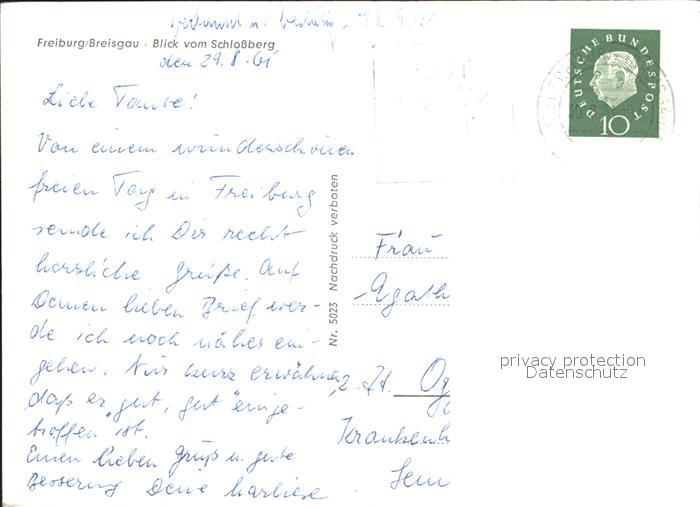 Freiburg/Breisgau · Blick vom Schloßberg
den 29.8.61
Liebe Tante!
Von einem wunderschönen
freien Tag in Freiburg
sende ich Dir recht
herzliche Grüße. Auf
Deinen lieben Brief wer-
de ich noch näher ein-
gehen. Nur kurz erwähne,
daß er „gut, gut" einge-
troffen ist.
Einen lieben Gruß u. gute
Besserung Deine
Nr. 5023 Nachdruck verboten
DEUTSCHE BUNDESPOST
10
Frau
Agath
z. Zt.
Krankenh
privacy protection
Datenschutz